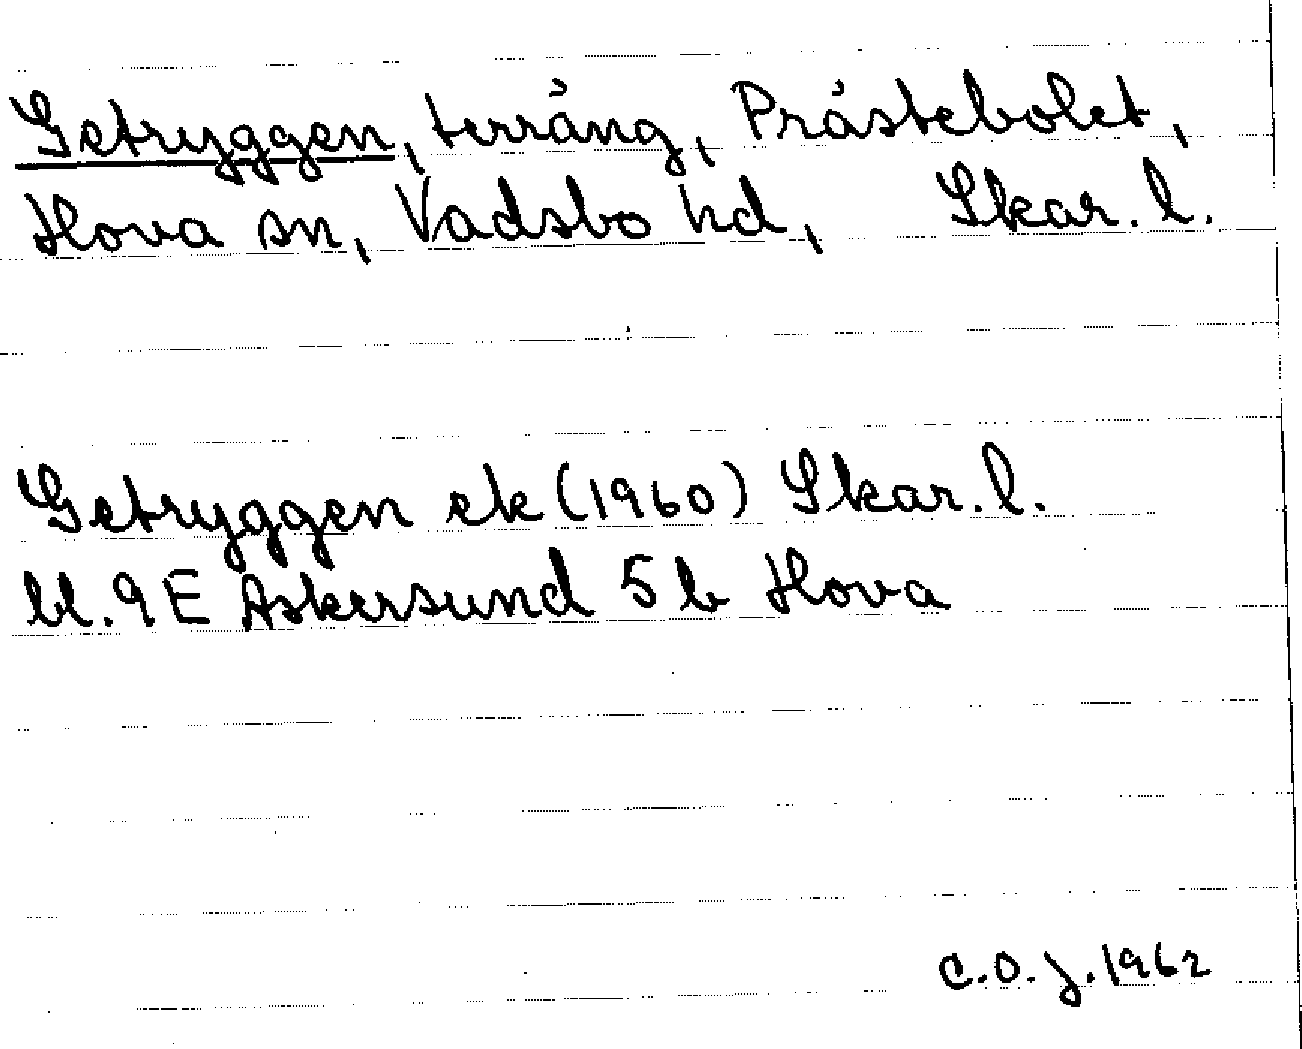 Getryggen, terräng, Prästebolet,
Hova sn, Vadsbo hd, Skar. l.
Getryggen ek (1960) Skar. l.
bl. 9 E Askersund 5 b Hova
C.O.J. 1962